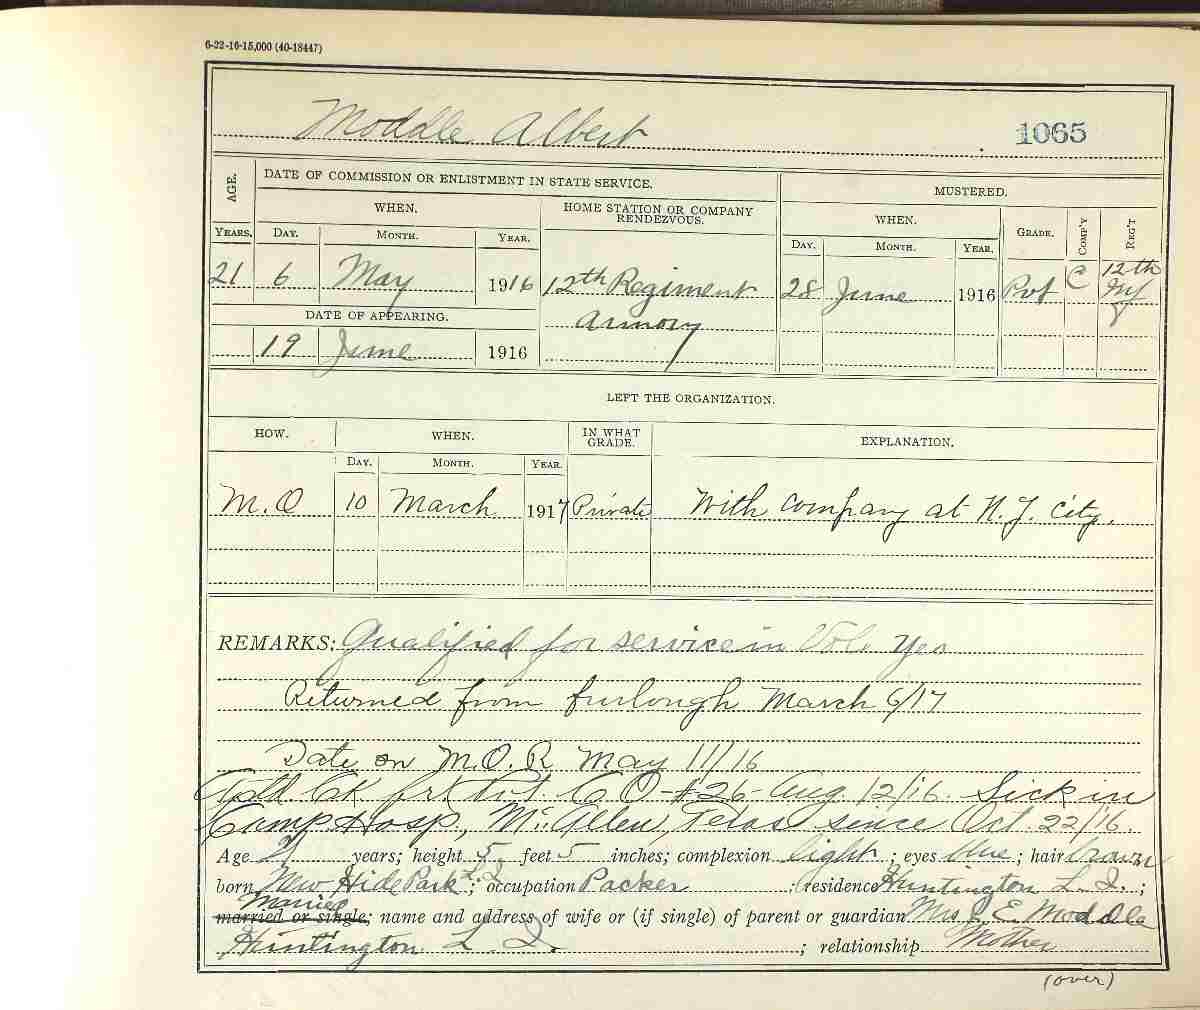 6-22-16-15,000 (40-18447)
Moddle Albert 1065
AGE. DATE OF COMMISSION OR ENLISTMENT IN STATE SERVICE. MUSTERED.
WHEN. HOME STATION OR COMPANY RENDEZVOUS. WHEN. GRADE. COMP'Y REG'T
YEARS. DAY. MONTH. YEAR. DAY. MONTH. YEAR.
21 6 May 1916 12th Regiment 28 June 1916 Pvt C 12th
NY
DATE OF APPEARING. Armory
19 June 1916
LEFT THE ORGANIZATION.
HOW. WHEN. IN WHAT GRADE. EXPLANATION.
DAY. MONTH. YEAR.
M.O 10 March 1917 Private With company at N.Y. City.
REMARKS: Qualified for service in Vols Yes
Returned from furlough March 6/17
Date on M.O.R May 11/16
Aptd Ck fr. Pvt. C O - #26 - Aug. 12/16. Sick in
Camp Hosp., Mc Allen, Texas since Oct. 22/16.
Age 21 years; height 5 feet 5 inches; complexion light; eyes blue; hair brown
born New Hide Park L.I; occupation Packer; residence Huntington L.I.;
Married
married or single; name and address of wife or (if single) of parent or guardian Mrs E. Moddle
Huntington L I.; relationship Mother
(over)